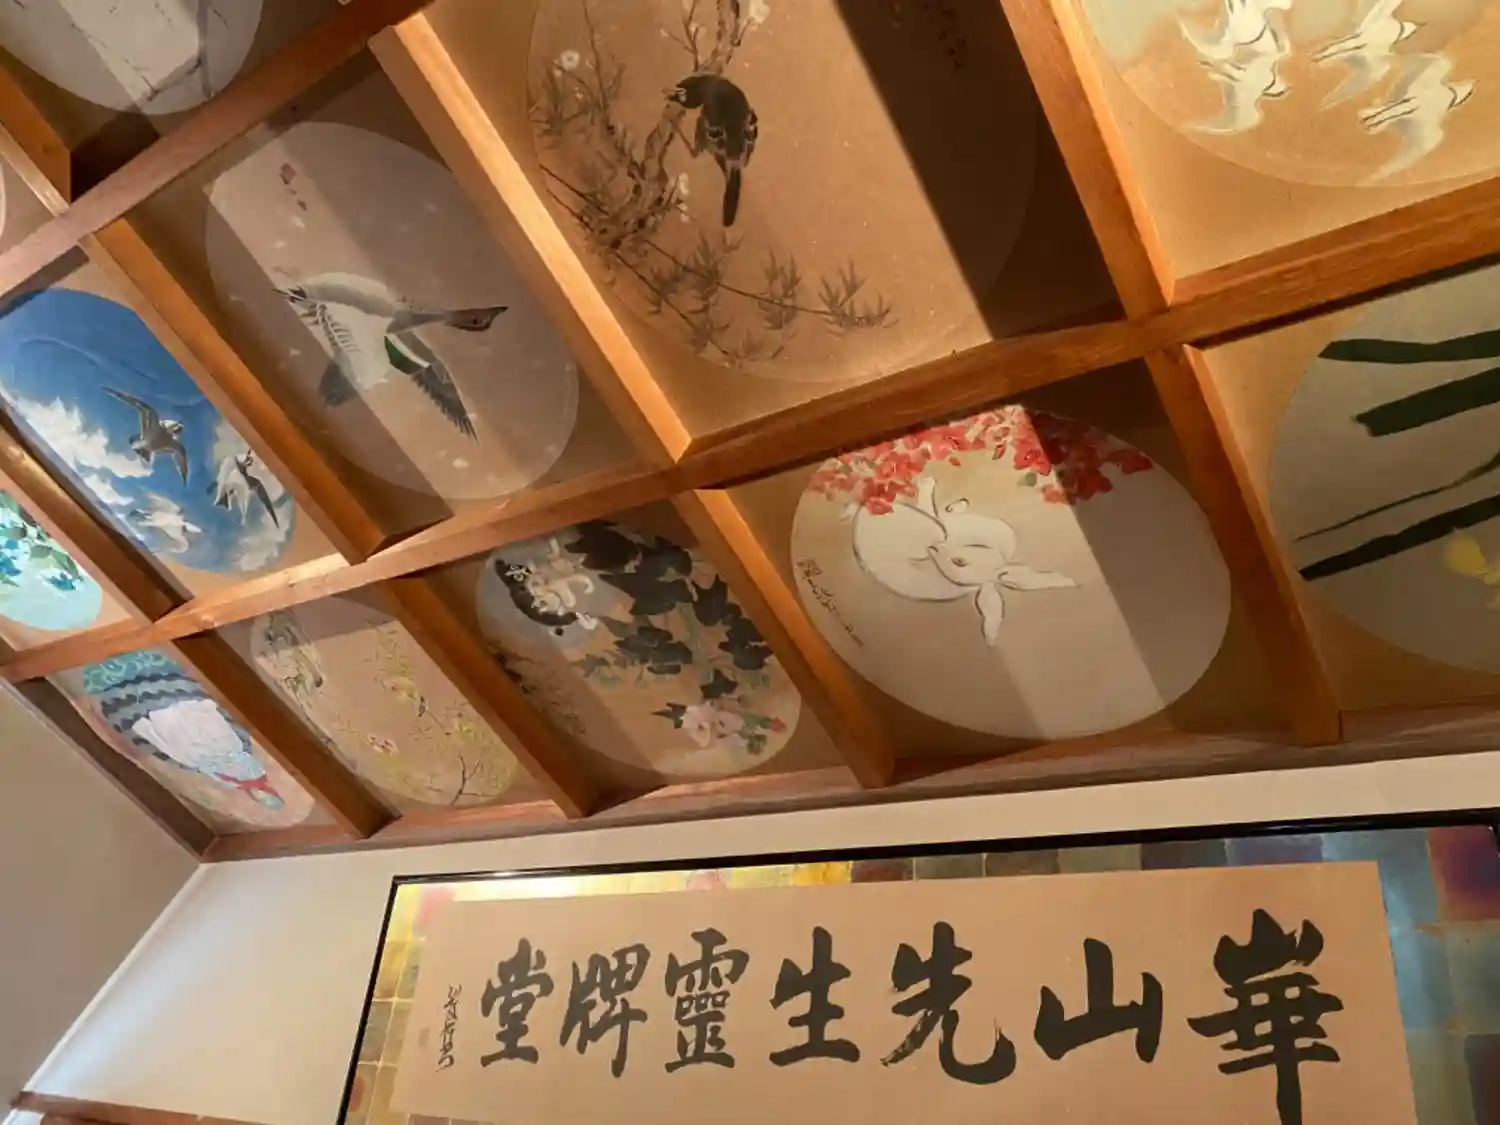 華山先生靈牌堂